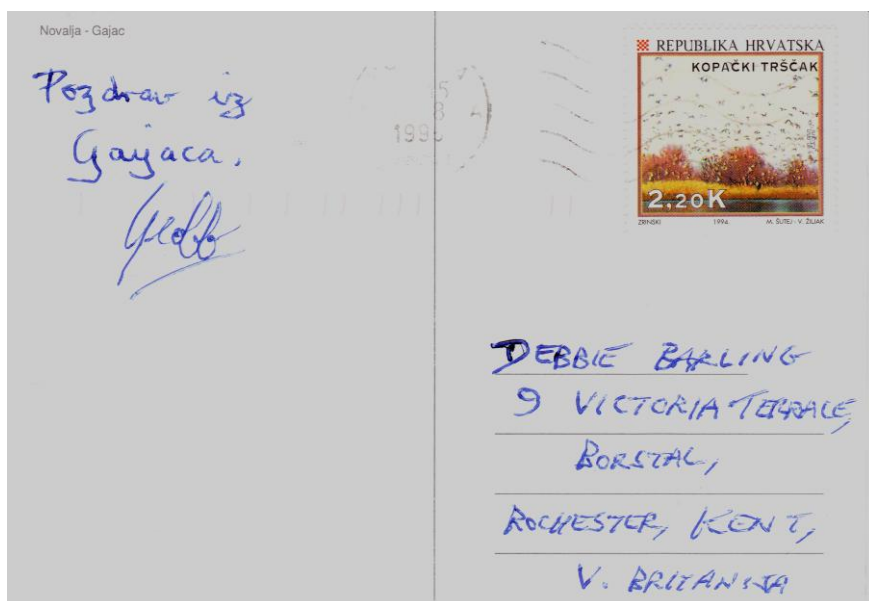 Novalja - Gajac
Pozdrav iz
Gajaca.
REPUBLIKA HRVATSKA
KOPAČKI TRŠČAK
2,20K
ZRINSKI 1994. M. ŠUTEJ - V. ŽILJAK
DEBBIE BARLING
9 VICTORIA TERRACE,
BORSTAL,
ROCHESTER, KENT,
V. BRITANIJA